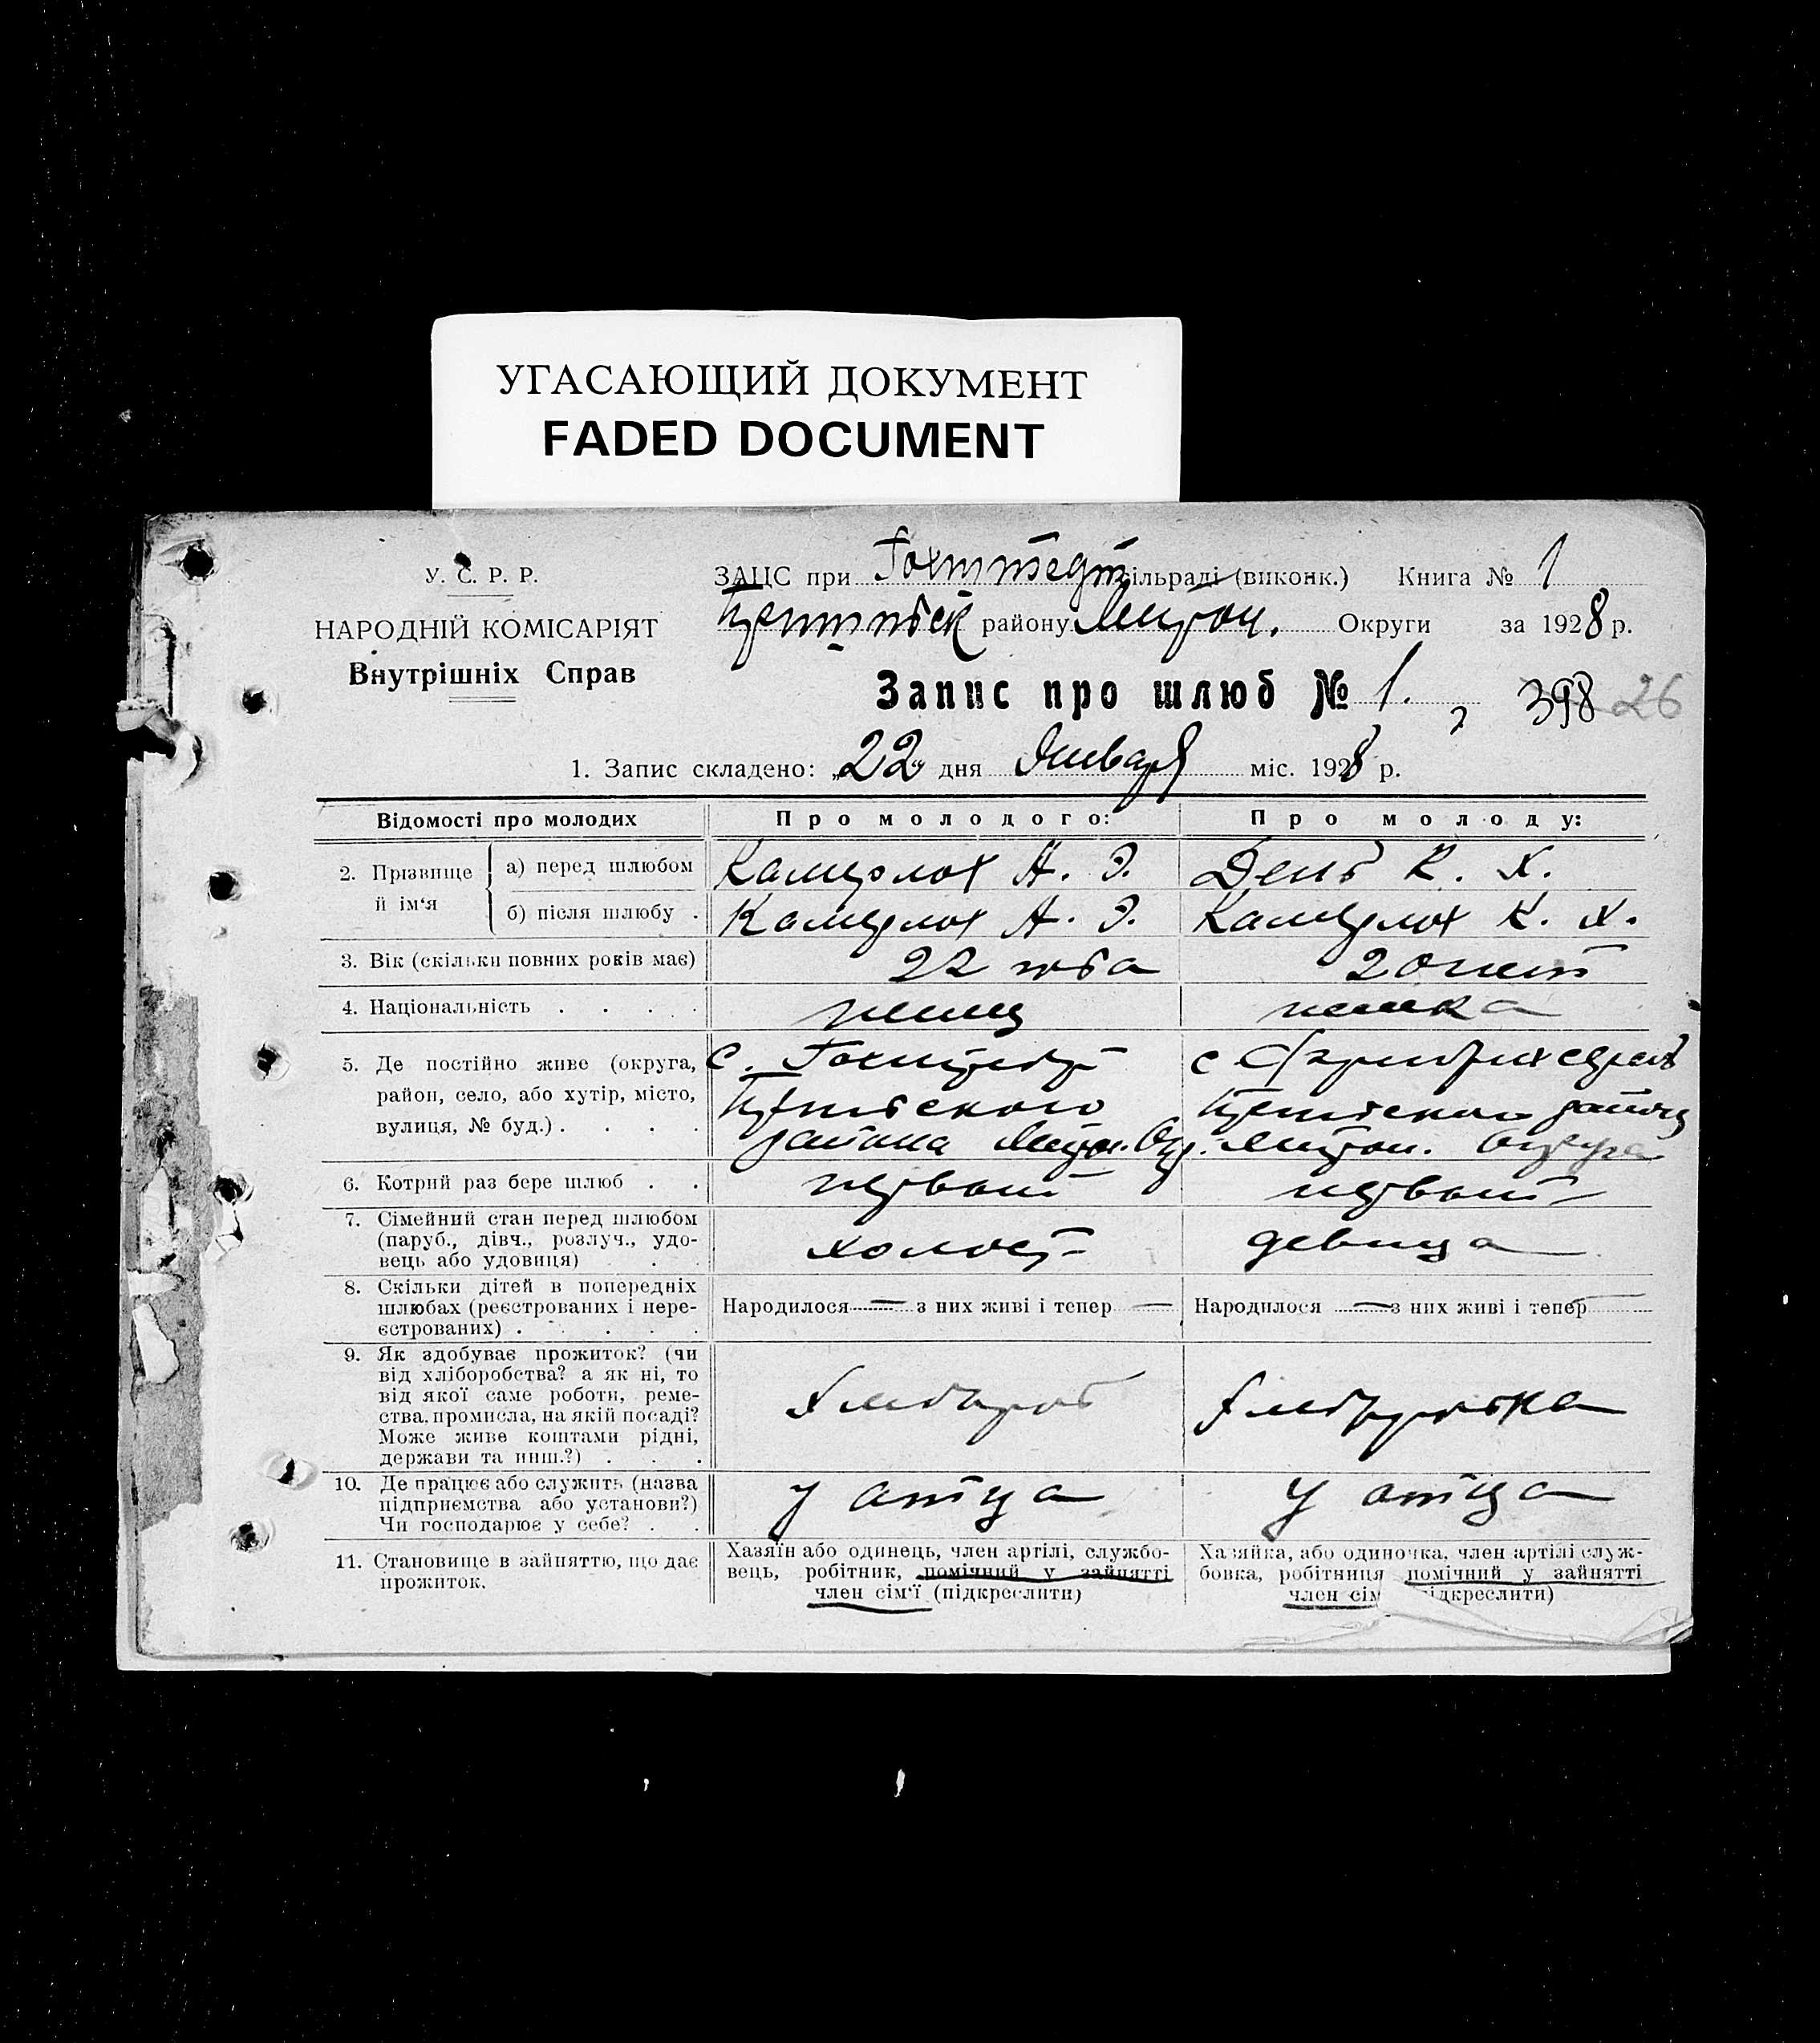 УГАСАЮЩИЙ ДОКУМЕНТ
FADED DOCUMENT
У. С. Р. Р.
НАРОДНІЙ КОМІСАРІЯТ
Внутрішніх Справ
ЗАЦС при Гохштедт сільраді (виконк.) Книга № 1
району Округи за 1928 р.
Запис про шлюб № 1.
398 26
1. Запис складено: „22" дня Января міс. 1928 р.
Відомості про молодих
Про молодого:
Про молоду:
2. Прізвище й ім'я
а) перед шлюбом
Камерлох А. Э.
День К. Х.
б) після шлюбу .
Камерлох А. Э.
Камерлох К. Х.
3. Вік (скільки повних років має)
22 года
20 лет
4. Національність . . . .
немец
немка
5. Де постійно живе (округа,
район, село, або хутір, місто,
вулиця, № буд.) . . . .
с.
района
с
района
Округа
6. Котрий раз бере шлюб . .
первый
первый
7. Сімейний стан перед шлюбом
(паруб., дівч., розлуч., удо-
вець або удовиця) . .
холост
девица
8. Скільки дітей в попередніх
шлюбах (реєстрованих і пере-
єстрованих) . . . . .
Народилося — з них живі і тепер —
Народилося — з них живі і тепер
9. Як здобуває прожиток? (чи
від хліборобства? а як ні, то
від якої саме роботи, реме-
ства, промисла, на якій посаді?
Може живе коштами рідні,
держави та инш.?) . . .
хлебороб
хлеборобка
10. Де працює або служить (назва
підприємства або установи?)
Чи господарює у себе? . .
у отца
у отца
11. Становище в зайняттю, що дає
прожиток.
Хазяїн або одинець, член артілі, службо-
вець, робітник, помічний у зайнятті
член сім'ї (підкреслити)
Хазяйка, або одиночка, член артілі служ-
бовка, робітниця помічний у зайнятті
член сім ідкреслити)